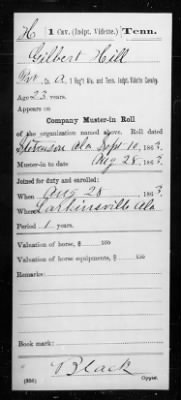 H 1 Cav. (Indpt. Vidette). Tenn.
Gilbert Hill
Pvt., Co. A, 1 Reg't Ala. and Tenn. Indpt. Vidette Cavalry.
Age 23 years.
Appears on
Company Muster-in Roll
of the organization named above. Roll dated
Stevenson Ala Sept 10, 1863.
Muster-in to date Aug 28, 1863.
Joined for duty and enrolled:
When Aug 28, 1863.
Where Larkinsville Ala
Period 1 years.
Valuation of horse, $ 100
Valuation of horse equipments, $ 100
Remarks:
Book mark:
Black
(356) Copyist.